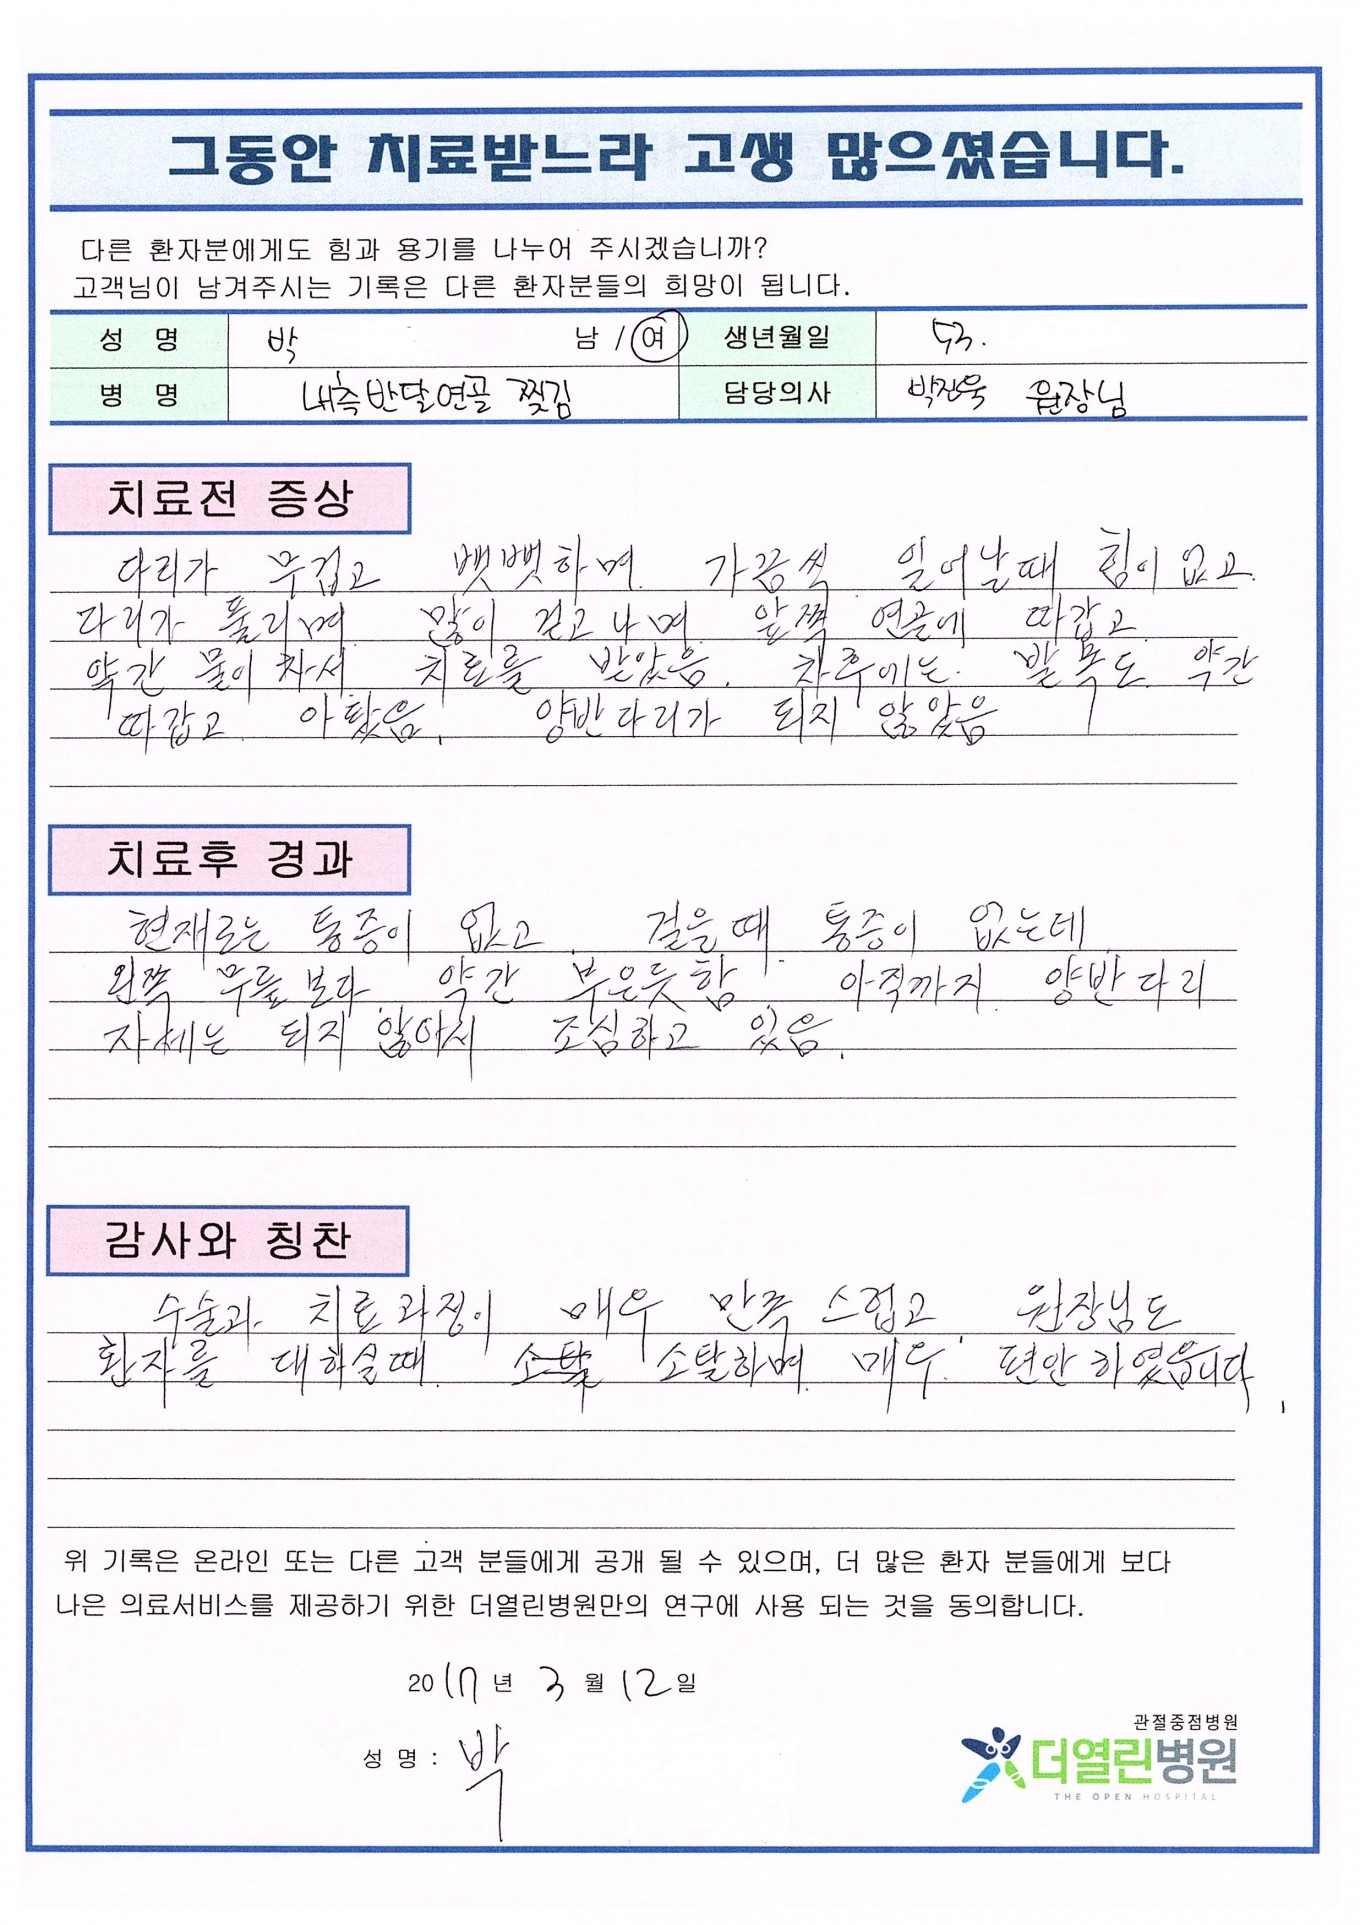 그동안 치료받느라 고생 많으셨습니다.
다른 환자분에게도 힘과 용기를 나누어 주시겠습니까?
고객님이 남겨주시는 기록은 다른 환자분들의 희망이 됩니다.
성 명 박 남 / 여 생년월일 53.
병 명 내측반달연골 찢김 담당의사 박진욱 원장님
치료전 증상
다리가 무겁고 뻣뻣하며 가끔씩 일어날때 힘이 없고.
다리가 풀리며 많이 걷고나며 앞쪽 연골에 따갑고
약간 물이 차서 치료를 받았음. 차후에는 발목도 약간
따갑고 아팠음. 양반다리가 되지 않았음
치료후 경과
현재로는 통증이 없고. 걸을때 통증이 없는데
왼쪽 무릎보다 약간 부은듯함. 아직까지 양반다리
자세는 되지 않아서 조심하고 있음.
감사와 칭찬
수술과 치료과정이 매우 만족스럽고 원장님도
환자를 대하실때 소탈 소탈하며 매우 편안하였습니다.
위 기록은 온라인 또는 다른 고객 분들에게 공개 될 수 있으며, 더 많은 환자 분들에게 보다
나은 의료서비스를 제공하기 위한 더열린병원만의 연구에 사용 되는 것을 동의합니다.
2017년 3월 12일
성 명 : 박
관절중점병원
더열린병원
THE OPEN HOSPITAL